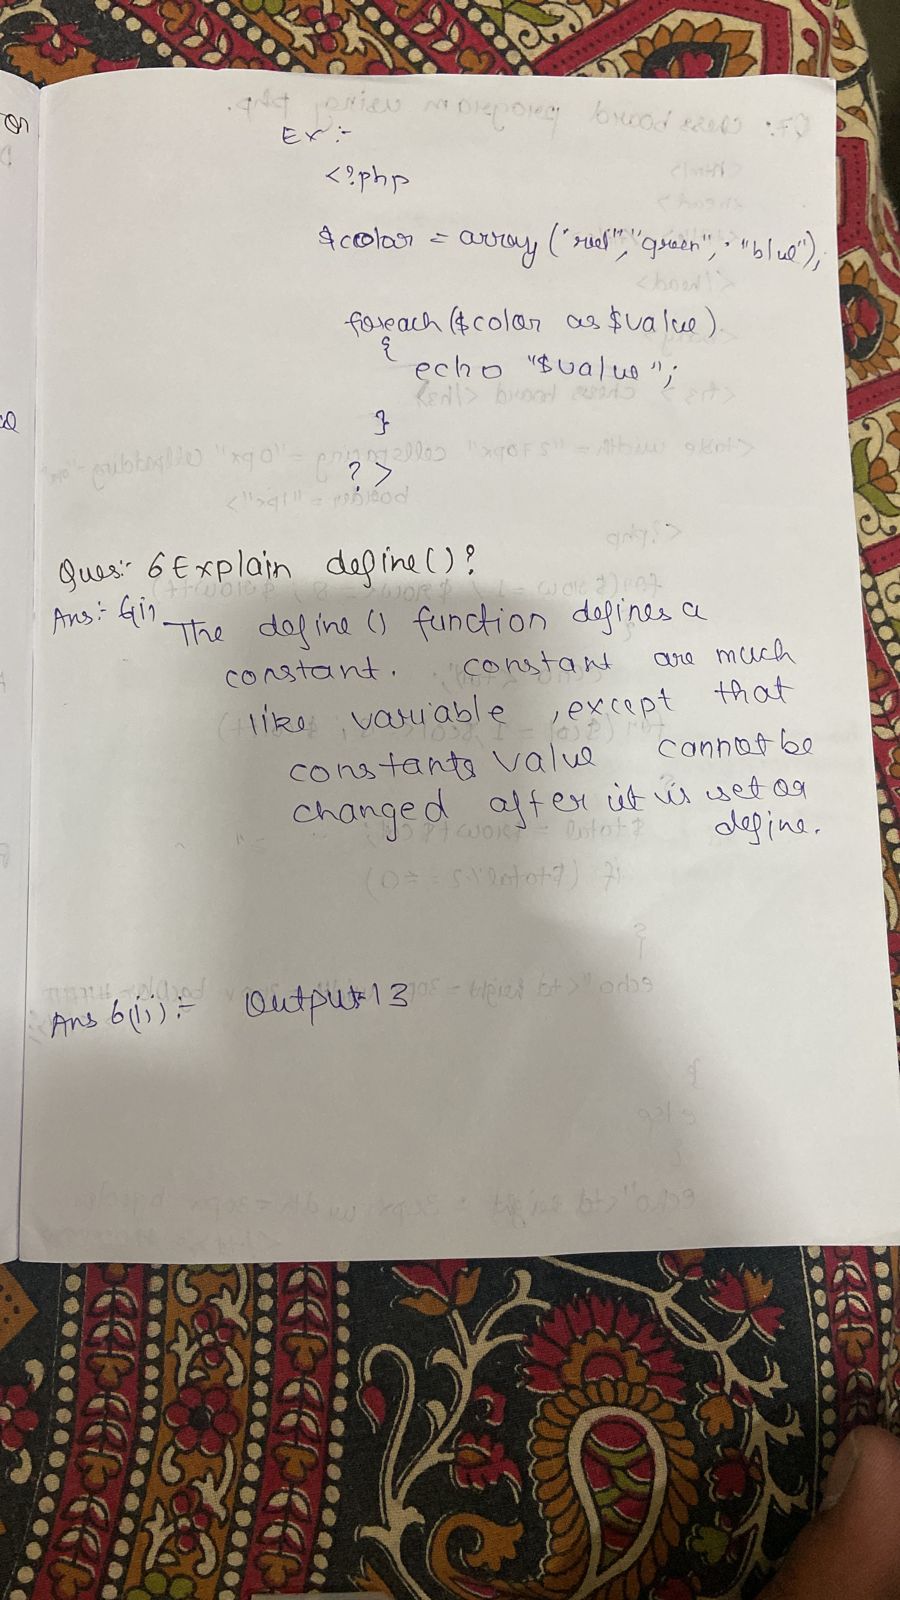 Ex:-
<?php
$color = array ("red", "green", "blue");
foreach ($color as $value)
{
echo "$value";
}
?>
Ques:- 6 Explain define()?
Ans:- 6(i) The define () function defines a
constant. constant are much
like variable , except that
constants value cannot be
changed after it is set or
define.
Ans 6(ii):- Output 13